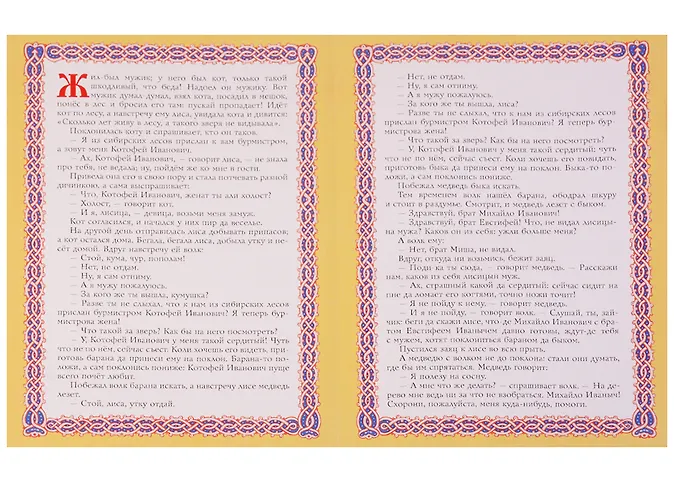 Жил-был мужик; у него был кот, только такой
шкодливый, что беда! Надоел он мужику. Вот
мужик думал, думал, взял кота, посадил в мешок,
понёс в лес и бросил его там: пускай пропадает! Идёт
кот по лесу, а навстречу ему лиса, увидала кота и дивится:
«Сколько лет живу в лесу, а такого зверя не видывала».
Поклонилась коту и спрашивает, кто он таков.
— Я из сибирских лесов прислан к вам бурмистром,
а зовут меня Котофей Иванович.
— Ах, Котофей Иванович, — говорит лиса, — не знала
про тебя, не ведала; ну, пойдём же ко мне в гости.
Привела она его в свою нору и стала потчевать разной
дичинкою, а сама выспрашивает:
— Что, Котофей Иванович, женат ты али холост?
— Холост, — говорит кот.
— И я, лисица, — девица, возьми меня замуж.
Кот согласился, и начался у них пир да веселье.
На другой день отправилась лиса добывать припасов;
а кот остался дома. Бегала, бегала лиса, добыла утку и не-
сёт домой. Вдруг навстречу ей волк:
— Стой, кума, чур, пополам!
— Нет, не отдам.
— Ну, я сам отниму.
— А я мужу пожалуюсь.
— За кого же ты вышла, кумушка?
— Разве ты не слыхал, что к нам из сибирских лесов
прислан бурмистром Котофей Иванович? Я теперь бур-
мистрова жена!
— Что такой за зверь? Как бы на него посмотреть?
— У, Котофей Иванович у меня такой сердитый! Чуть
что не по нём, сейчас съест. Коли хочешь его видеть, при-
готовь барана да принеси ему на поклон. Барана-то по-
ложи, а сам поклонись пониже: Котофей Иванович пуще
всего почёт любит.
Побежал волк барана искать, а навстречу лисе медведь
лезет.
— Стой, лиса, утку отдай.
— Нет, не отдам.
— Ну, я сам отниму.
— А я мужу пожалуюсь.
— За кого же ты вышла, лиса?
— Разве ты не слыхал, что к нам из сибирских лесов
прислан бурмистром Котофей Иванович? Я теперь бур-
мистрова жена!
— Что такой за зверь? Как бы на него посмотреть?
— У, Котофей Иванович у меня такой сердитый: чуть
что не по нём, сейчас съест. Коли хочешь его повидать,
приготовь быка да принеси ему на поклон. Быка-то по-
ложи, а сам поклонись пониже.
Побежал медведь быка искать.
Тем временем волк нашёл барана, ободрал шкуру
и стоит в раздумье. Смотрит, и медведь лезет с быком.
— Здравствуй, брат Михайло Иванович!
— Здравствуй, брат Евстифей! Что, не видал лисицы-
на мужа? Каков он из себя: ужли больше меня?
А волк ему:
— Нет, брат Миша, не видал.
Вдруг, откуда ни возьмись, бежит заяц.
— Поди-ка ты сюда, — говорит медведь. — Расскажи
нам, каков из себя лисицын муж.
— Ах, страшный какой да сердитый: сейчас сидит на
пне да ломает его когтями, точно ножи точит!
— Я не пойду к нему, — говорит медведь.
— И я не пойду, — говорит волк. — Слушай, ты, зай-
чик: беги да скажи лисе, что де Михайло Иванович с бра-
том Евстифеем Иванычем давно готовы, ждут-де тебя
с мужем, хотят поклониться бараном да быком.
Пустился заяц к лисе во всю прыть.
А медведю с волком не до поклона: стали они думать,
где бы им спрятаться. Медведь говорит:
— Я полезу на сосну.
— А мне что же делать? — спрашивает волк. — На де-
рево мне ведь ни за что не взобраться. Михайло Иваныч!
Схорони, пожалуйста, меня куда-нибудь, помоги.